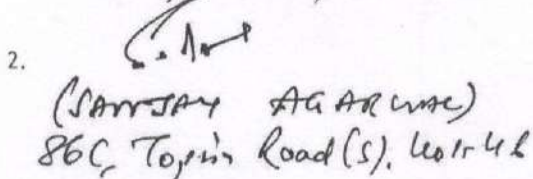 2.
(SANJAY AGARWAL)
86C, Topsia Road (S). Kol-46